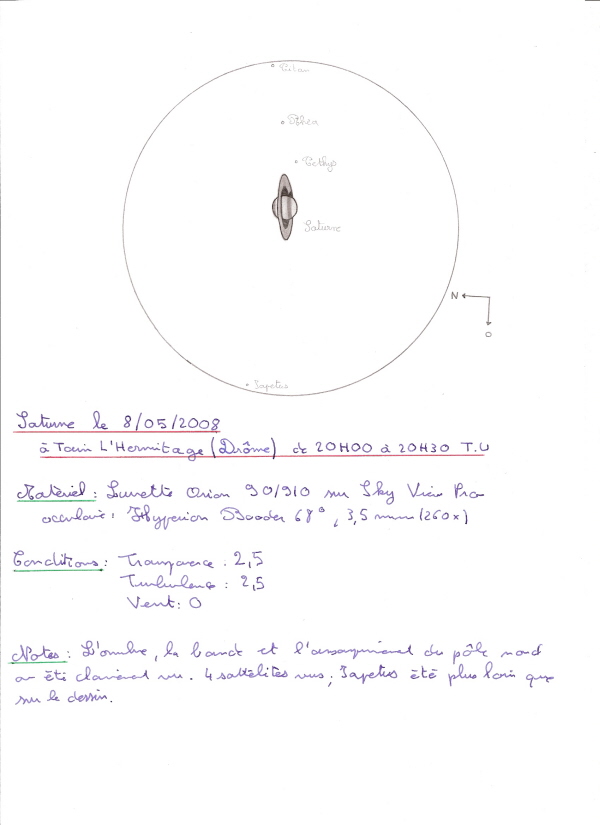 Titan
Rhéa
Téthys
Saturne
N
O
Japetus
Saturne le 8/05/2008
à Tain L'Hermitage (Drôme) de 20H00 à 20H30 T.U
Matériel : Lunette Orion 90/910 sur Sky View Pro
occulaire : Hyperion Baader 68°, 3,5 mm (260x)
Conditions : Transparence : 2,5
Turbulence : 2,5
Vent : 0
Notes : L'ombre, la bande et du pôle nord
on été clairement vu. 4 satellites vus ; Japetus été plus loin que
sur le dessin.